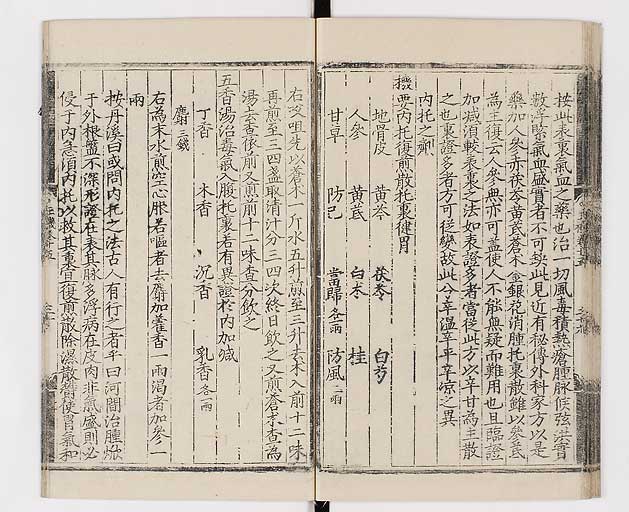 按此表裏氣血之藥也治一切風毒積熱瘡腫脉候弦洪實
數浮緊氣血盛實者不可熒此見近有秘傳外科家方以是
藥加人參赤茯苓黃芪蒼朮金銀花消腫托裏散雖以參芪
為主復云人參無亦可蓋使人不能無疑而難用也且臨證
加减須較表裏之法如表證多者當從此方以辛甘為主散
之也裏證多者方可從變故此分辛溫辛平辛涼之異
内托之劑
機要内托復煎散托裏健胃
地骨皮 黃芩 茯苓 白芍
人參 黃芪 白朮 桂
甘草 防己 當歸各一兩 防風二兩
右㕮咀先以蒼朮一斤水五升煎至三升去朮入前十二味
再煎至三四盞取清汁分三四次終日飲之又煎蒼朮查為
湯去查依前又煎前十二味查分飲之
五香湯治毒氣入腹托裏若有異證於内加减
丁香 木香 沉香 乳香各一兩
麝三錢
右為末水煎空心服若嘔者去麝加藿香一兩渴者加參一
兩
按丹溪曰或問内托之法古人有行之者乎曰河間治腫焮
于外根盤不深形證在表其脉多浮病在皮肉非氣盛則必
侵于内急須内托以救其裏宜復煎散除濕散鬱使胃氣和